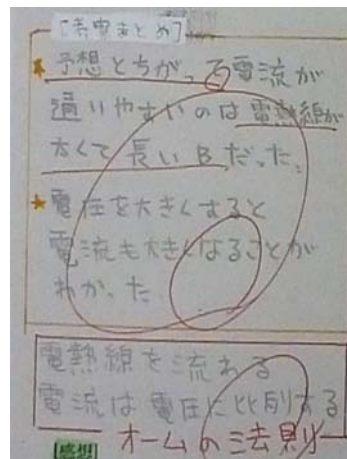 [考察まとめ]
★予想とちがって電流が
通りやすいのは電熱線が
太くて長いBだった。
★電圧を大きくすると
電流も大きくなることが
わかった
電熱線を流れる
電流は電圧に比例する
オームの法則
[感想]